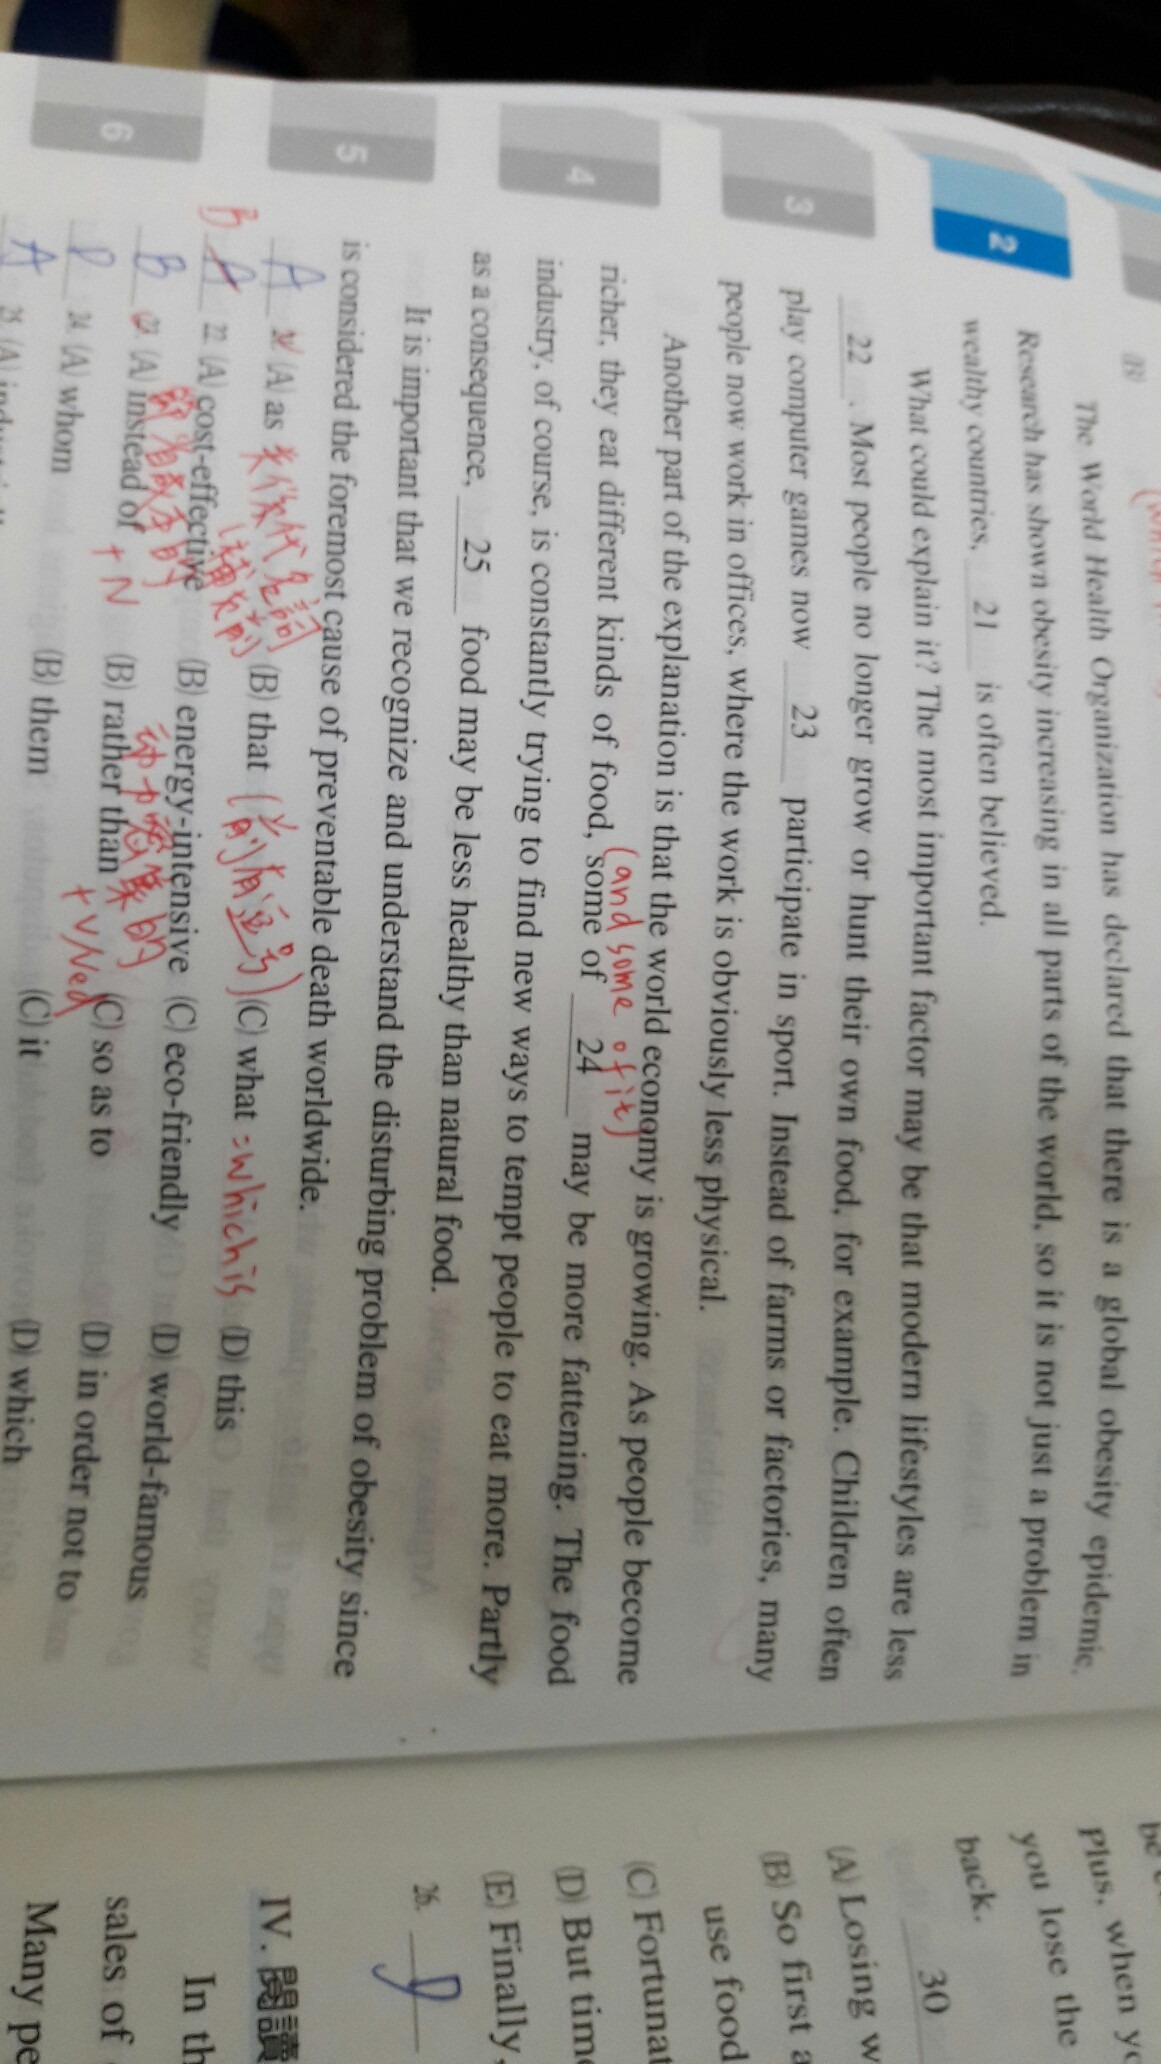 (B)
The World Health Organization has declared that there is a global obesity epidemic.
Research has shown obesity increasing in all parts of the world, so it is not just a problem in
wealthy countries, 21 is often believed.
What could explain it? The most important factor may be that modern lifestyles are less
22 . Most people no longer grow or hunt their own food, for example. Children often
play computer games now 23 participate in sport. Instead of farms or factories, many
people now work in offices, where the work is obviously less physical.
Another part of the explanation is that the world economy is growing. As people become
(and some of it)
richer, they eat different kinds of food, some of 24 may be more fattening. The food
industry, of course, is constantly trying to find new ways to tempt people to eat more. Partly
as a consequence, 25 food may be less healthy than natural food.
It is important that we recognize and understand the disturbing problem of obesity since
is considered the foremost cause of preventable death worldwide.
A (A) as (B) that (C) what = which is (D) this
B A 22. (A) cost-effective (B) energy-intensive (C) eco-friendly (D) world-famous
B (A) instead of + N (B) rather than + V/Ved (C) so as to (D) in order not to
D 24. (A) whom (B) them (C) it (D) which
A 25. (A)
2
3
4
5
6
plus, when
you lose the
back.
30
(A) Losing
(B) So first
use food
(C)
(D) But
(E) Finally,
26. D
IV. 閱讀
sales of
Many